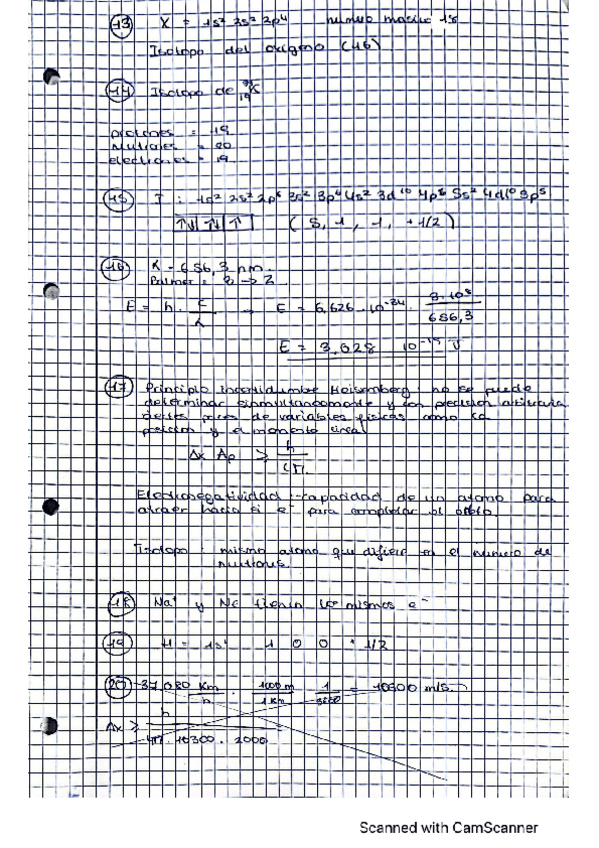 13 X = 1s² 2s² 2p⁴ numero masico 18
Isotopo del oxigeno (16)
14 Isotopo de ³⁹₁₉K
protones = 19
Nutrones = 20
electrones = 19
15 I : 1s² 2s² 2p⁶ 3s² 3p⁶ 4s² 3d¹⁰ 4p⁶ 5s² 4d¹⁰ 5p⁵
↑↓ ↑↓ ↑ ( 5, 1, 1, +1/2 )
16 λ = 656,3 nm.
Balmer = 3 → 2
E = h · c/λ → E = 6,626 · 10⁻³⁴ · 3·10⁸/656,3
E = 3,028 10⁻¹⁹ J
17 Principio incertidumbre Heisemberg : no se puede
determinar simultaneamente y con precision arbitraria
ciertos pares de variables fisicas como la
posicion y el momento lineal
Δx Δp ≥ h/4π.
Electronegatividad : capacidad de un atomo para
atraer hacia si e⁻ para completar el orbita.
Isotopo : mismo atomo que difiere en el numero de
nutrones.
18 Na⁺ y Ne tienen los mismos e⁻
19 H = 1s¹ 1 0 0 + 1/2
20 37.080 Km/h · 1000 m/1 Km · 1/3600 = 10300 m/s.
Δx ≥ h/4π · 10300 · 2000
Scanned with CamScanner